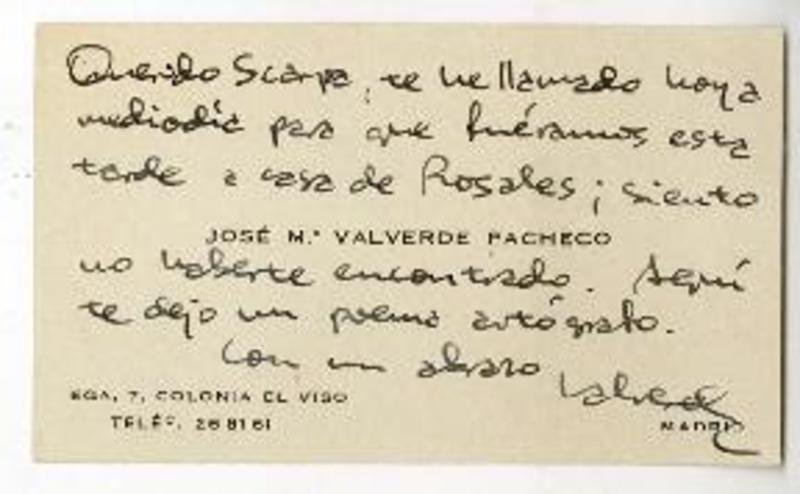 Querido Scarpa, te he llamado hoy a
mediodía para que fuéramos esta
tarde a casa de Rosales; siento
JOSÉ M.ª VALVERDE PACHECO
no haberte encontrado. Aquí
te dejo un poema autógrafo.
Con un abrazo
Valverde
EGA, 7, COLONIA EL VISO
TELÉF. 26 81 61
MADRID